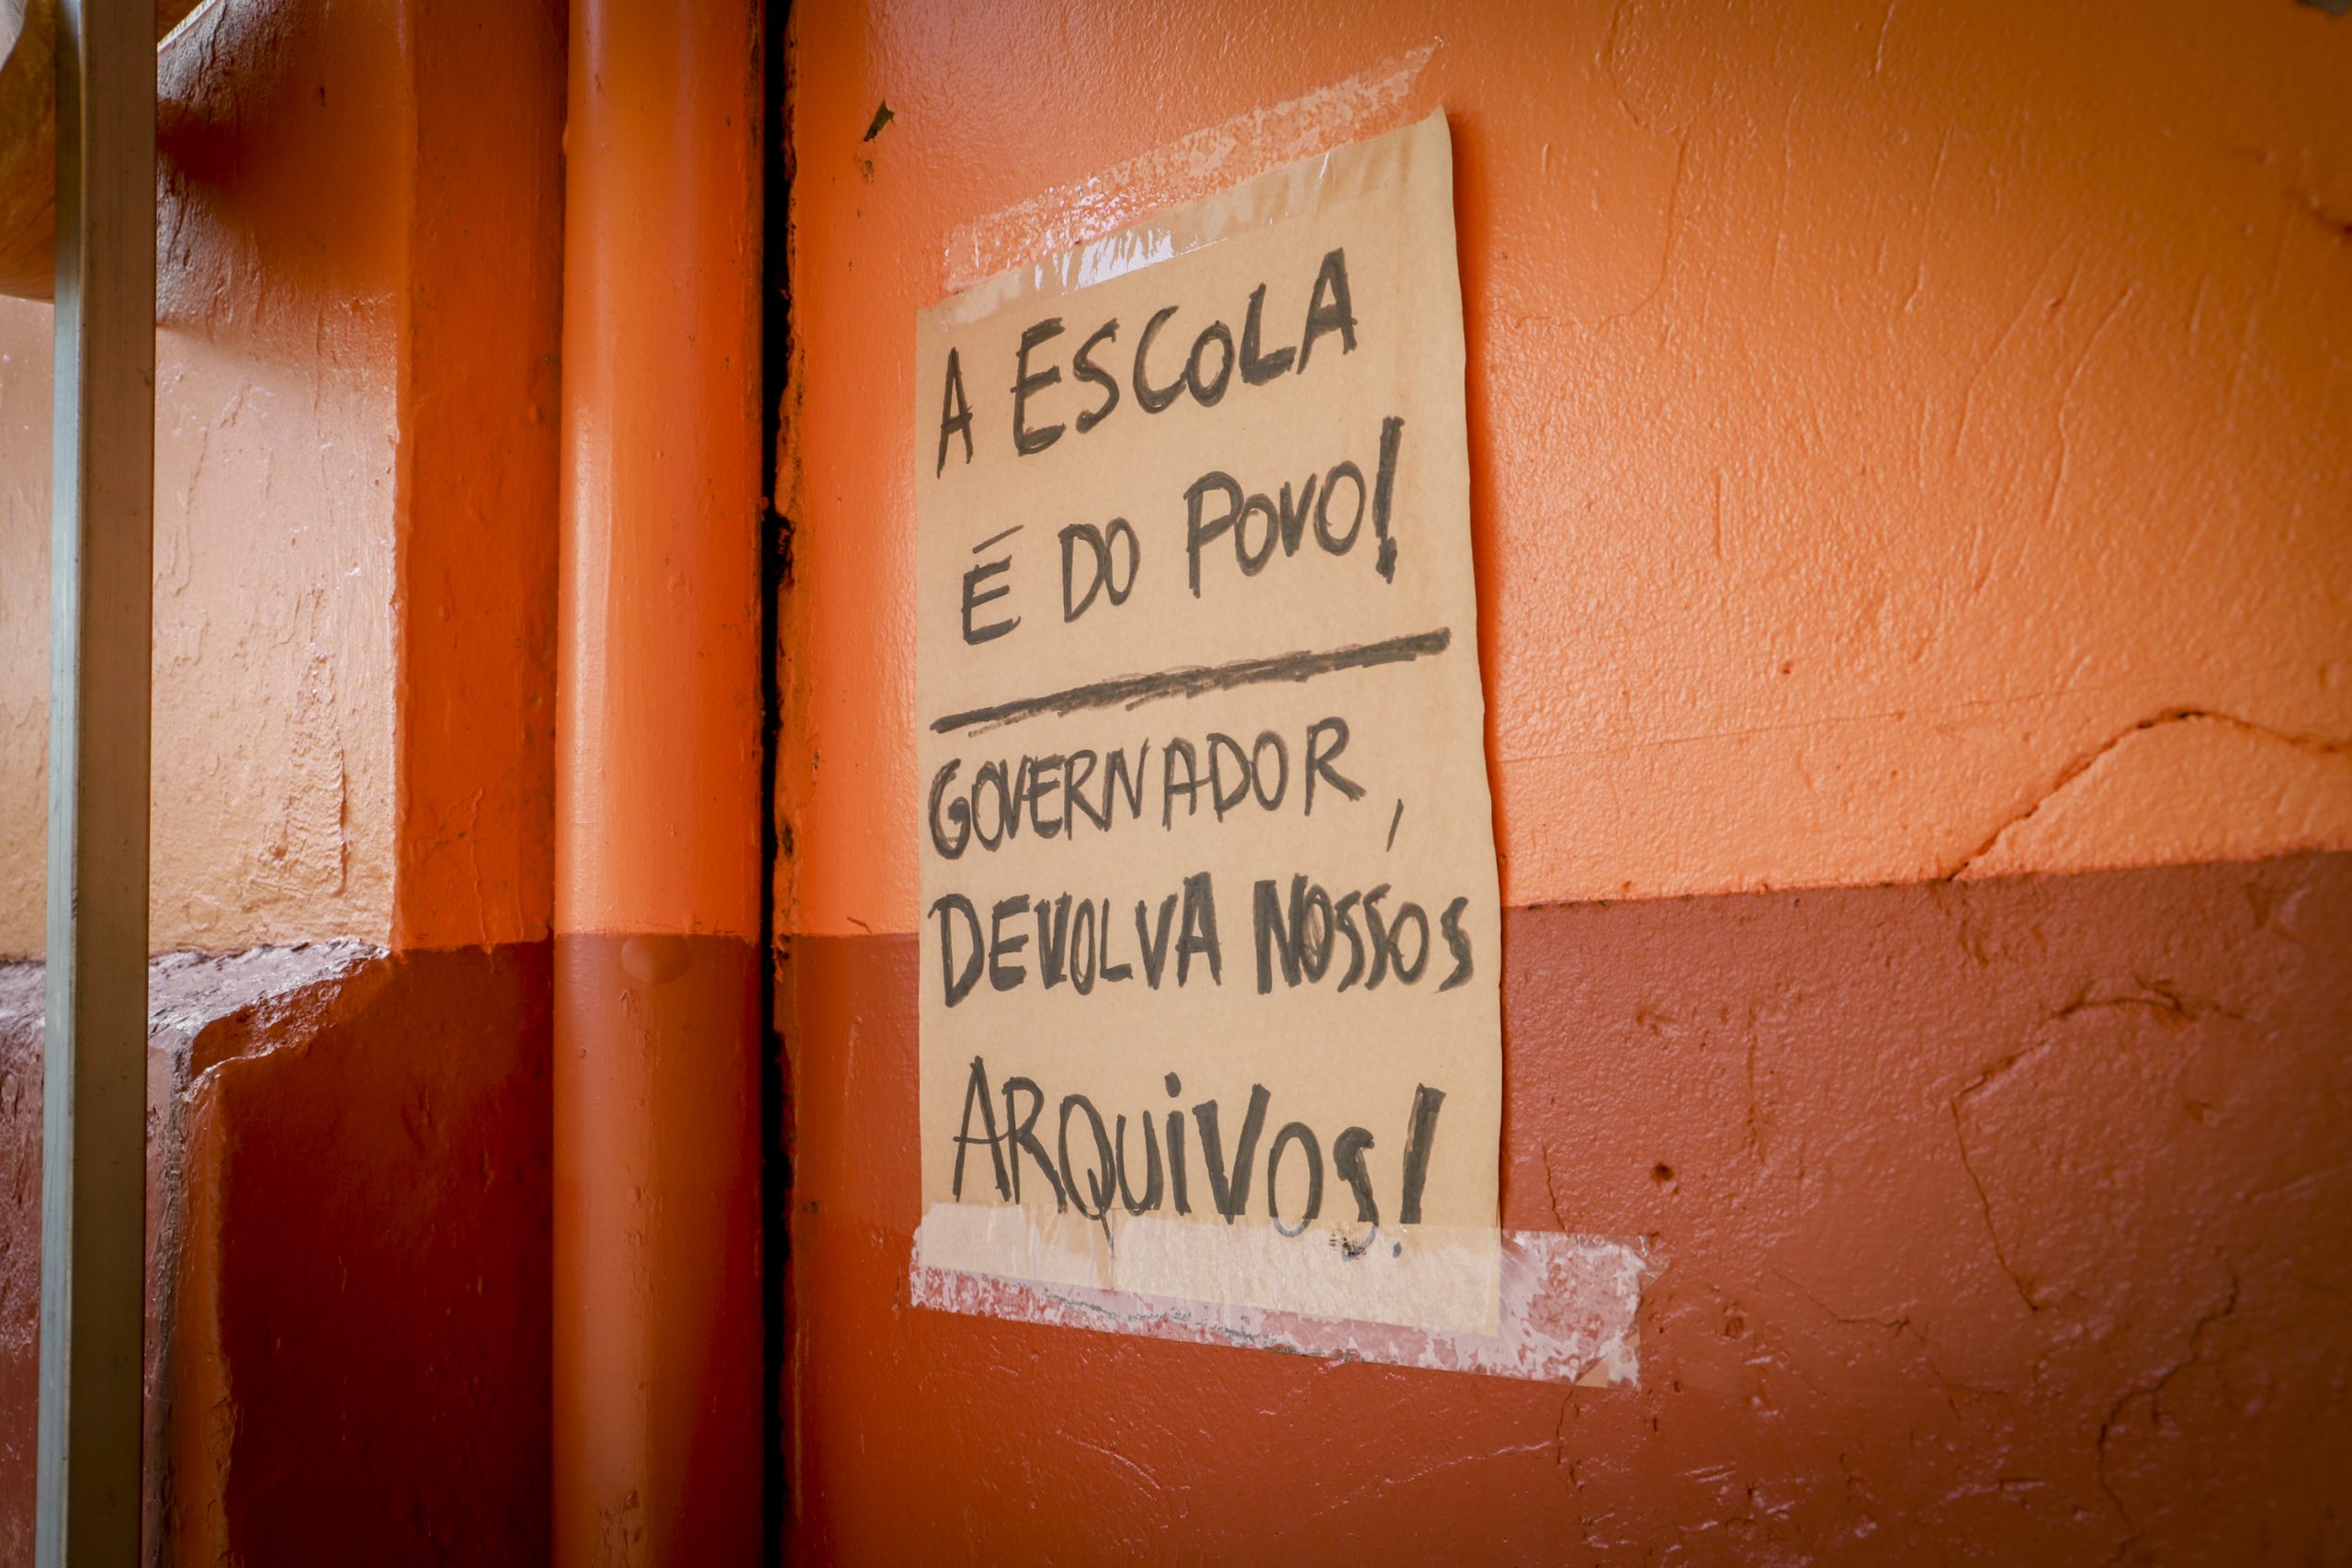 A ESCOLA
É DO POVO!
GOVERNADOR,
DEVOLVA NOSSOS
ARQUIVOS!